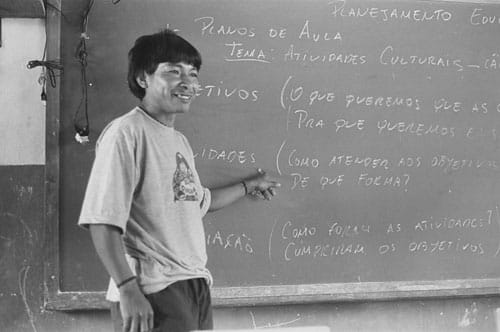 PLANEJAMENTO EDU
PLANOS DE AULA
TEMA: ATIVIDADES CULTURAIS _ CA
ETIVOS (O QUE QUEREMOS QUE AS
PRA QUE QUEREMOS
VIDADES (COMO ATENDER AOS OBJETIVO
DE QUE FORMA?
IAÇÃO (COMO FORAM AS ATIVIDADES?
CUMPRIRAM OS OBJETIVOS